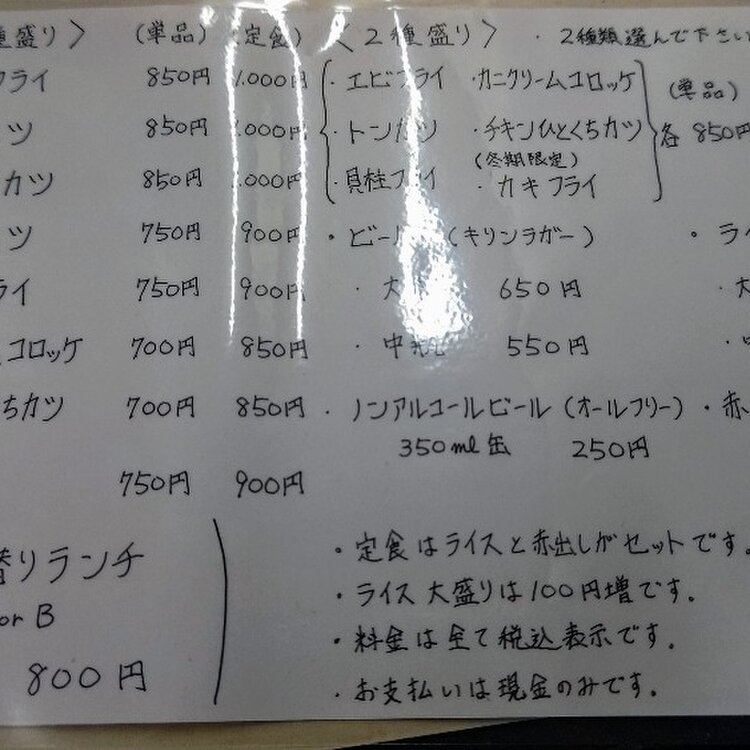 種盛り〉 (単品) (定食)
フライ 850円 1.000円
ツ 850円 1.000円
カツ 850円 1.000円
ツ 750円 900円
ライ 750円 900円
コロッケ 700円 850円
ちカツ 700円 850円
750円 900円
替りランチ
or B
800円
〈2種盛り〉 ・2種類選んで下さい
・エビフライ ・カニクリームコロッケ (単品)
・トンカツ ・チキンひとくちカツ 各850円
(冬期限定)
・貝柱フライ ・カキフライ
・ビール (キリンラガー) ・ラ
・大瓶 650円 ・大
・中瓶 550円
・ノンアルコールビール (オールフリー) ・赤
350ml缶 250円
・定食はライスと赤出しがセットです。
・ライス大盛りは100円増です。
・料金は全て税込表示です。
・お支払いは現金のみです。